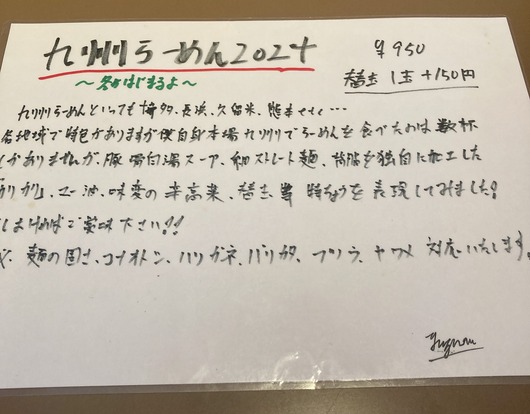 九州らーめん2024
￥950
〜冬がはじまるよ〜
替玉 1玉+150円
九州らーめんといっても博多、長浜、久留米、熊本etc…
各地域で特色がありますが僕自身本場九州でらーめんを食べたのは数杯
しかありませんが、豚骨白湯スープ、細ストレート麺、背脂を独自に加工した
カリカリ」、マー油、味変の辛高菜、替玉等 特ちょうを表現してみました!
しよければご賞味下さい!!
麺の固さ、コナオトシ、ハリガネ、バリカタ、フツウ、ヤワメ 対応いたします。